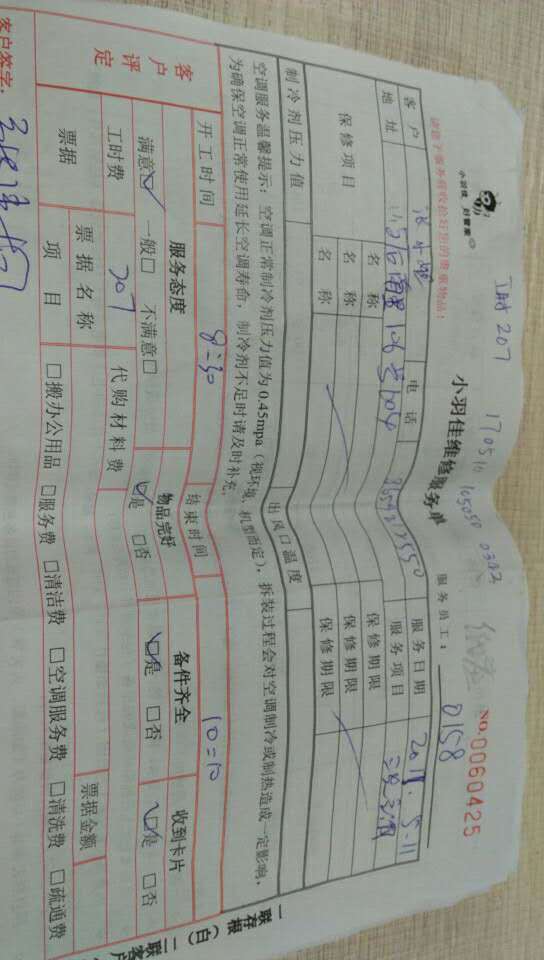 工时 207
170511 105050 0302
小羽佳 好管家
小羽佳维修服务单
NO.0060425
请您于服务前收捡好您的贵重物品:
服务员工: 0158
客户 电话 服务日期 2017.5.11
地址 服务项目
保修项目 名称 保修期限
名称 保修期限
名称 保修期限
制冷剂压力值 出风口温度
空调服务温馨提示: 空调正常制冷剂压力值为0.45mpa(视环境、机型而定), 拆装过程会对空调制冷或制热造成一定影响,
为确保空调正常使用延长空调寿命, 制冷剂不足时请及时补充。
开工时间 8:30 结束时间 10:10
客户评定 服务态度 物品完好 备件齐全 收到卡片
满意☑ 一般□ 不满意□ ☑是 □否 ☑是 □否 ☑是 □否
工时费 207 代购材料费
票据 票据名称 票据金额
项目 □搬办公用品 □服务费 □清洁费 □空调服务费 □清洗费 □疏通费
客户签字:
一联存根(白) 二联客户